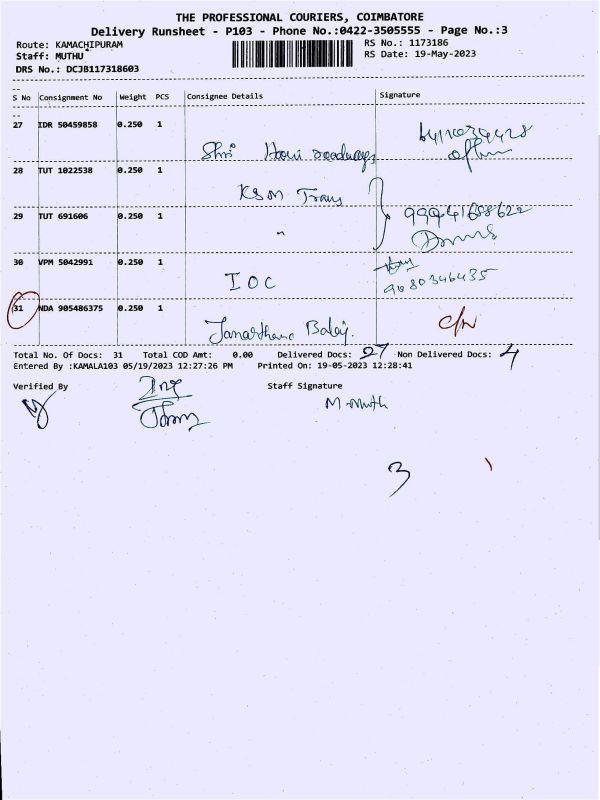 THE PROFESSIONAL COURIERS, COIMBATORE
Delivery Runsheet - P103 - Phone No.:0422-3505555 - Page No.:3
Route: KAMACHIPURAM RS No.: 1173186
Staff: MUTHU RS Date: 19-May-2023
DRS No.: DCJB117318603
S No Consignment No Weight PCS Consignee Details Signature
27 IDR 50459858 0.250 1
Shri Hari roadways
28 TUT 1022538 0.250 1
KSM Trans
29 TUT 691606 0.250 1 "
30 VPM 5042991 0.250 1
IOC 9080346435
31 NDA 905486375 0.250 1
Janarthana Balaji.
Total No. Of Docs: 31 Total COD Amt: 0.00 Delivered Docs: 27 Non Delivered Docs: 4
Entered By :KAMALA103 05/19/2023 12:27:26 PM Printed On: 19-05-2023 12:28:41
Verified By Staff Signature
M Muth
3 1